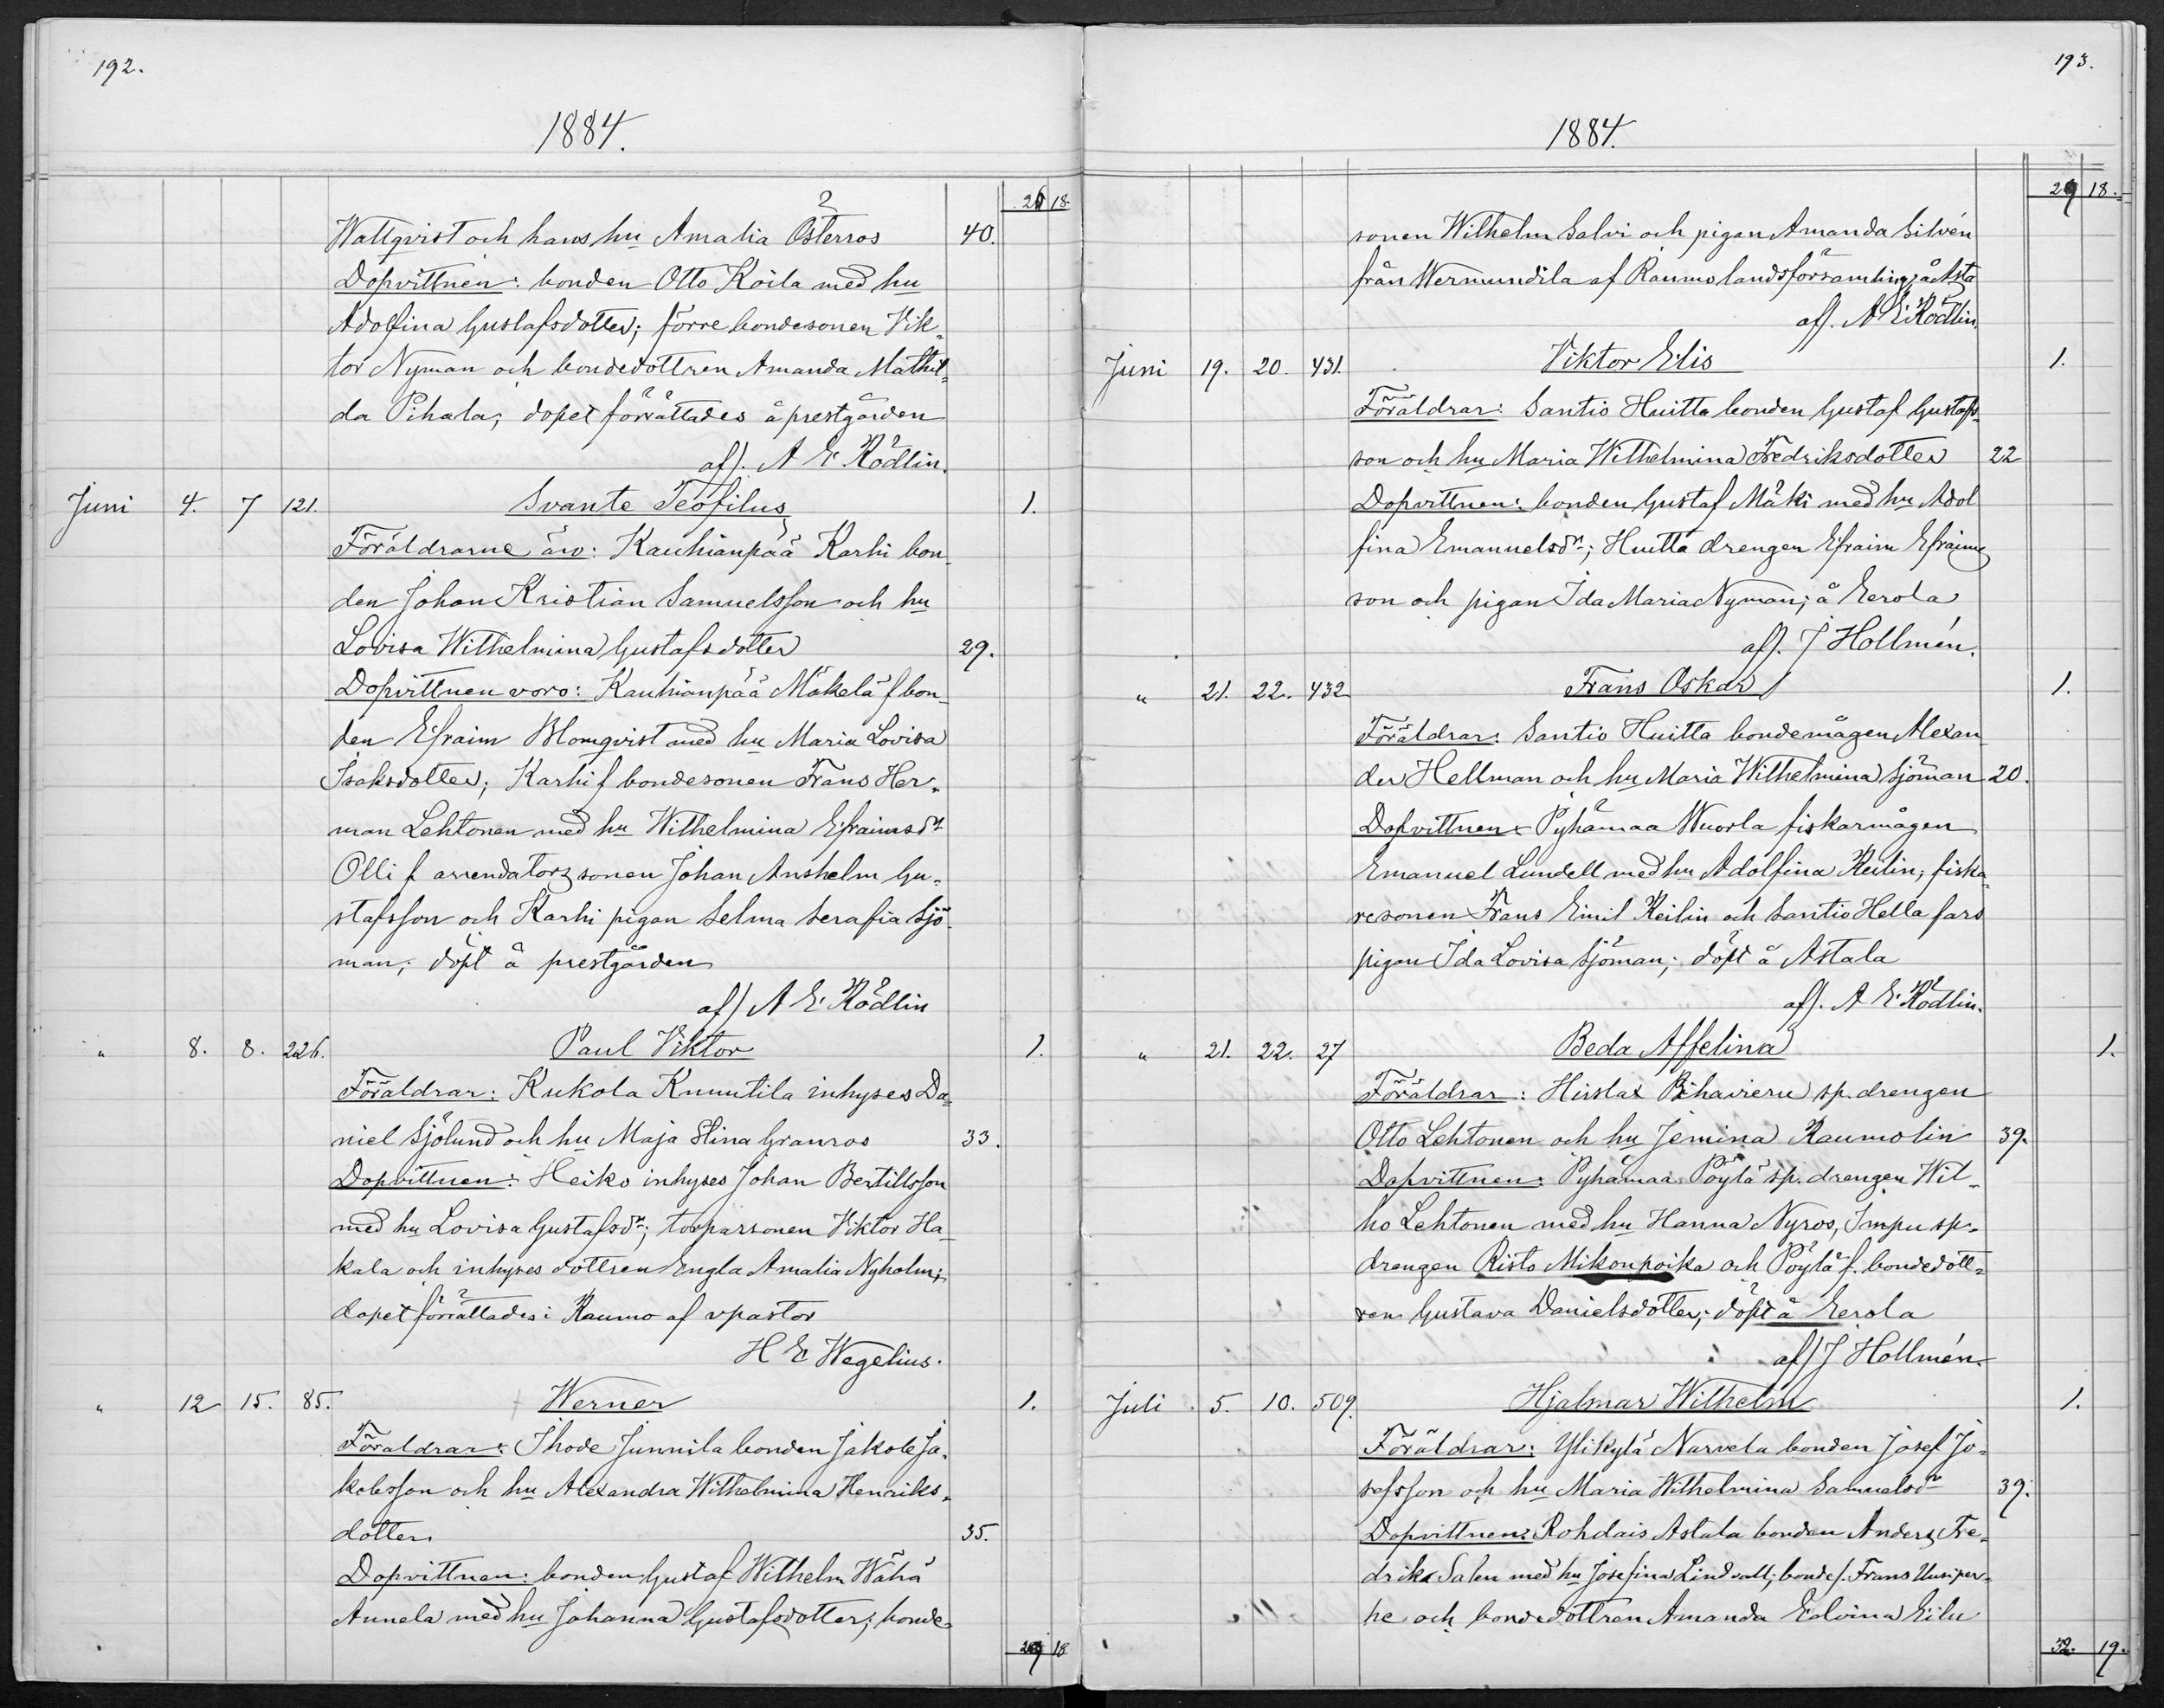 192.
1884.
26 18.
Wallqvist och hans hu Amalia Österros 40.
Dopvittnen: bonden Otto Koila med hu
Adolfina Gustafsdotter; förre bondesonen Vik-
tor Nyman och bondedottren Amanda Mathil-
da Pihala; dopet förrättades å prestgården
af). A E. Rödlin.
Juni 4. 7 121. Svante Teofilus 1.
Föräldrarne äro: Kauhianpää Karhi bon-
den Johan Kristian Samuelsson och hu
Lovisa Wilhelmina Gustafsdotter 29.
Dopvittnen voro: Kauhianpää Mäkelä f bon-
den Efraim Blomqvist med hu Maria Lovisa
Isaksdotter; Karhi f bondesonen Frans Her-
man Lehtonen med hu Wilhelmina Efraimsdr
Olli f arrendators sonen Johan Anshelm Gu-
stafsson och Karhi pigan Selma Serafia Sjö-
man; döpt å prestgården
af) A E. Rödlin
" 8. 8. 226. Paul Viktor 1.
Föräldrar: Kukola Knuutila inhyses Da-
niel Sjölund och hu Maja Stina Granros 33.
Dopvittnen: Heiko inhyses Johan Bertilsson
med hu Lovisa Gustafsdr; torparsonen Viktor Ha-
kala och inhyses dottren Engla Amalia Nyholm;
dopet förrättades i Raumo af vpastor
H E Wegelius.
" 12 15. 85. Werner 1.
Föräldrar: Ihode Junnila bonden Jakob Ja-
kobsson och hu Alexandra Wilhelmina Henriks-
dotter 35.
Dopvittnen: bonden Gustaf Wilhelm Wähä
Annela med hu Johanna Gustafsdotter; bonde-
29 18
193.
1884.
29 18.
sonen Wilhelm Salvi och pigan Amanda Silvén
från Wermundila af Raumo landsförsamling;
af). A E. Rödlin.
Juni 19. 20. 431. Viktor Elis 1.
Föräldrar: Santio Huitta bonden Gustaf Gustafs-
son och hu Maria Wilhelmina Fredriksdotter 22
Dopvittnen: bonden Gustaf Mäki med hu Adol
fina Emanuelsdr; Huitta drengen Efraim Efraims
son och pigan Ida Maria Nyman; å Eerola
af). J Hollmén.
" 21. 22. 432 Frans Oskar 1.
Föräldrar: Santio Huitta bondemågen Alexan-
der Hellman och hu Maria Wilhelmina Sjöman 20.
Dopvittnen: Pyhämaa Wuorla fiskarmågen
Emanuel Lundell med hu Adolfina Keilin; fiska-
resonen Frans Emil Keilin och Santio Hella fars
pigan Ida Lovisa Sjöman; döpt å Astala
af). A E. Rödlin.
" 21. 22. 27 Beda Affelina 1.
Föräldrar: Hirslax Pihavieru sp. drengen
Otto Lehtonen och hu Jemina Raumolin 39.
Dopvittnen: Pyhämaa Pöylä sp. drengen Wil-
ho Lehtonen med hu Hanna Nyros, Impu sp.
drengen Risto Mikonpoika och Pöylä f. bondedott-
ren Gustava Danielsdotter; döpt å Eerola
af) J Hollmén.
Juli 5. 10. 509. Hjalmar Wilhelm 1.
Föräldrar: Ylikylä Narvela bonden Josef Jo-
sefsson och hu Maria Wilhelmina Samuelsdr 39.
Dopvittnen: Rohdais Astala bonden Anders Fre-
drik Salen med hu Josefina Lindvall; bonde f. Frans Uusiper-
he och bondedottren Amanda Edvina Eilu
32. 19.